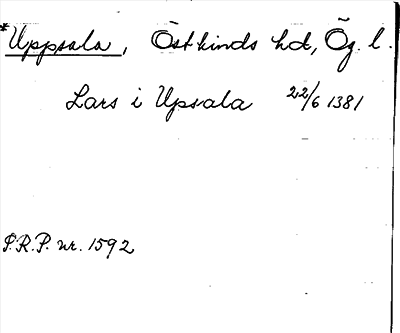 *Uppsala, Östkinds hd, Ög. l.
Lars i Upsala 22/6 1381
S.R.P. nr. 1592